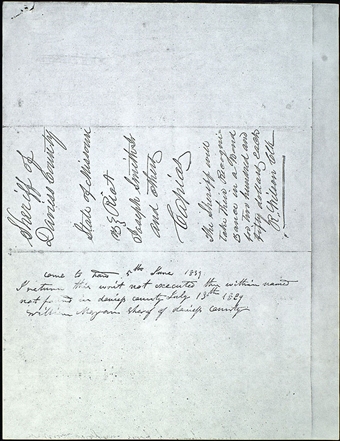 Sheriff of
Daviess County
State of Missouri
vs } Riot
Joseph Smith Jr
and others
Capias
The Sheriff will
take their Recogni
zance in a Bond
for two hundred and
Fifty dollars each
R. Wilson Clk
came to hand 5th June 1839
I return this writ not executed the within named
not found in daviess county July 13th 1839
William Morgan sheriff of daviess county